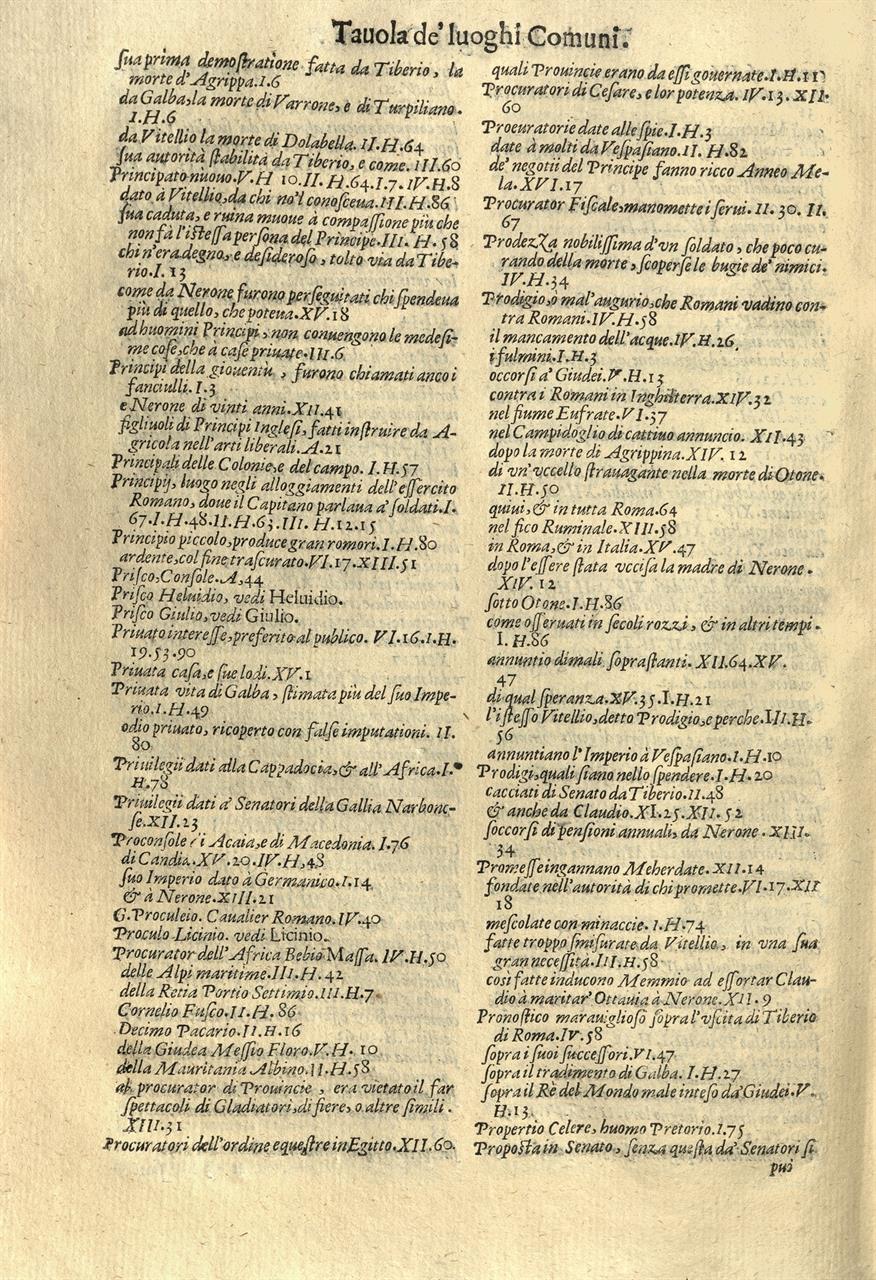 Tauola de' luoghi Comuni.
ſua prima demoſtratione fatta da Tiberio, la
morte d'Agrippa.I.6
da Galba,la morte di Varrone, e di Turpiliano.
I.H.6
da Vitellio la morte di Dolabella. II.H.64
ſua autorità ſtabilità da Tiberio, e come. III.60
Principato nuouo.V.H 10.II.H.64.I.7.IV.H.8
dato à Vitellio, da chi no'l conoſceua.III.H.86
ſua caduta, e ruina muoue à compaſſione più che
non fà l'iſteſſa perſona del Principe.III.H.58
chi n'era degno, e deſideroſo, tolto via da Tibe-
rio.I.13
come da Nerone furono perſeguitati chi ſpendeua
più di quello, che poteua.XV.18
ad huomini Principi, non conuengono le medeſi-
me coſe, che à caſe priuate.III.6
Principi della giouentu, furono chiamati anco i
fanciulli.I.3
e Nerone di vinti anni.XII.41
figliuoli di Principi Ingleſi, fatti inſtruire da A-
gricola nell'arti liberali. A.21
Principali delle Colonie, e del campo. I.H.57
Principij, luogo negli alloggiamenti dell'eſſercito
Romano, doue il Capitano parlaua a' ſoldati.I.
67.I.H.48.II.H.63.III. H.12.15
Principio piccolo, produce gran romori.I.H.80
ardente, col fine traſcurato.VI.17.XIII.51
Priſco, Conſole. A,44
Priſco Heluidio, vedi Heluidio.
Priſco Giulio, vedi Giulio.
Priuato intereſſe, preferito al publico. VI.16.I.H.
19.53.90
Priuata caſa, e ſue lodi.XV.1
Priuata vita di Galba, ſtimata più del ſuo Impe-
rio.I.H.49
odio priuato, ricoperto con falſe imputationi. II.
80
Priuilegii dati alla Cappadocia, & all'Africa.I.
H.78
Priuilegii dati a' Senatori della Gallia Narbone-
ſe.XII.23
Proconſole di Acaia, e di Macedonia. I.76
di Candia.XV.20.IV.H,48
ſuo Imperio dato à Germanico.I.14
& à Nerone.XIII.21
G. Proculeio. Caualier Romano.IV.40
Proculo Licinio. vedi Licinio.
Procurator dell'Africa Bebio Maſſa. IV.H.50
delle Alpi maritime.III.H.42
della Retia Portio Settimio.III.H.7
Cornelio Fuſco.II.H.86
Decimo Pacario.II.H.16
della Giudea Meſſio Floro.V.H. 10
della Mauritania Albino.II.H.58
al procurator di Prouincie, era vietato il far
ſpettacoli di Gladiatori, di fiere, o altre ſimili.
XIII.31
Procuratori dell'ordine equeſtre in Egitto.XII.60.
quali Prouincie erano da eſſi gouernate.I.H.11
Procuratori di Ceſare, e lor potenza. IV.13.XII.
60
Procuratorie date alle ſpie.I.H.3
date à molti da Veſpaſiano.II. H.82
de' negotii del Principe fanno ricco Anneo Me-
la.XVI.17
Procurator Fiſcale, manomette i ſerui. II.30.II.
67
Prodezza nobiliſſima d'vn ſoldato, che poco cu-
rando della morte, ſcoperſe le bugie de' nimici.
IV.H.34
Prodigio, o mal'augurio, che Romani vadino con-
tra Romani.IV.H.58
il mancamento dell'acque.IV.H.26
i fulmini.I.H.3
occorſi a' Giudei.V.H.13
contra i Romani in Inghilterra.XIV.32
nel fiume Eufrate.VI.37
nel Campidoglio di cattiuo annuncio. XII.43
dopo la morte di Agrippina.XIV. 12
di vn'vccello ſtrauagante nella morte di Otone.
II.H.50
quiui, & in tutta Roma.64
nel fico Ruminale.XIII.58
in Roma, & in Italia.XV.47
dopo l'eſſere ſtata vcciſa la madre di Nerone.
XIV. 12
ſotto Otone.I.H.86
come oſſeruati in ſecoli rozzi, & in altri tempi.
I. H.86
annuntio di mali ſopraſtanti. XII.64.XV.
47
di qual ſperanza.XV.35.I.H.21
l'iſteſſo Vitellio, detto Prodigio, e perche.III.H.
56
annuntiano l'Imperio à Veſpaſiano.I.H.10
Prodigi, quali ſiano nello ſpendere.I.H.20
cacciati di Senato da Tiberio.II.48
& anche da Claudio.XI.25.XII.52
ſoccorſi di penſioni annuali, da Nerone. XIII.
34
Promeſſe ingannano Meherdate.XII.14
fondate nell'autorità di chi promette.VI.17.XII
18
meſcolate con minaccie.I.H.74
fatte troppo ſmiſurate da Vitellio, in vna ſua
gran neceſſità.III.H.58
coſi fatte inducono Memmio ad eſſortar Clau-
dio à maritar' Ottauia à Nerone.XII.9
Pronoſtico marauiglioſo ſopra l'vſcita di Tiberio
di Roma.IV.58
ſopra i ſuoi ſucceſſori.VI.47
ſopra il tradimento di Galba. I.H.27
ſopra il Rè del Mondo male inteſo da' Giudei.V.
H.13
Propertio Celere, huomo Pretorio.I.75
Propoſta in Senato, ſenza queſta da' Senatori ſi
può